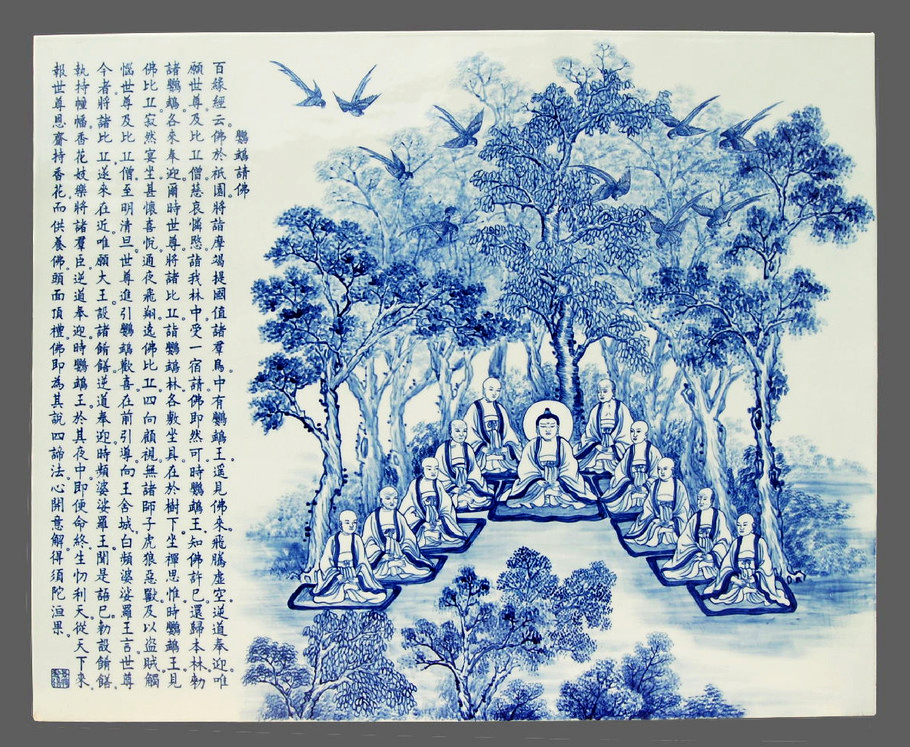 鸚鵡請佛
百緣經云。佛於祇園。將詣摩竭提國。值諸羣鳥。中有鸚鵡王。遙見佛來。飛騰虛空。逆道奉迎。唯
願世尊及比丘僧。慈哀憐愍。詣我林中。受一宿請。佛即然可。時鸚鵡王。知佛許已。還歸本林。勑
諸鸚鵡。各來奉迎。爾時世尊。將諸比丘。詣鸚鵡林。各敷坐具。在於樹下。坐禪思惟。時鸚鵡王。見
佛比丘。寂然宴坐。甚懷喜悅。通夜飛翔。遶佛比丘。四向顧視。無諸師子虎狼惡獸及以盜賊。觸
惱世尊及比丘僧。至明清旦。世尊進引。鸚鵡歡喜。在前引導。向王舍城。白頻婆娑羅王言。世尊
今者將諸比丘。遂來在近。唯願大王。設諸餚饍。逆道奉迎。時頻婆娑羅王聞是語已。勑設餚饍。
執持幢幡。香花妓樂。將諸羣臣。逆道奉迎。時鸚鵡王。於其夜中。即便命終。生忉利天。從天下來。
報世尊恩。齎持香花。而供養佛。頭面頂禮。佛即為其說四諦法。心開意解。得須陀洹果。